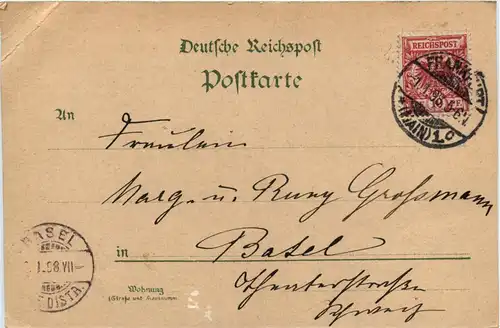 Deutsche Reichspost
Postkarte
REICHSPOST
FRANKFURT
(MAIN) 1.
An
Fräulein
Marg. u. Rosy Grossmann
in Basel
Theaterstraße
Schweiz
Wohnung
(Straße und Hausnummer)
BASEL
1.98.VII
DISTR.